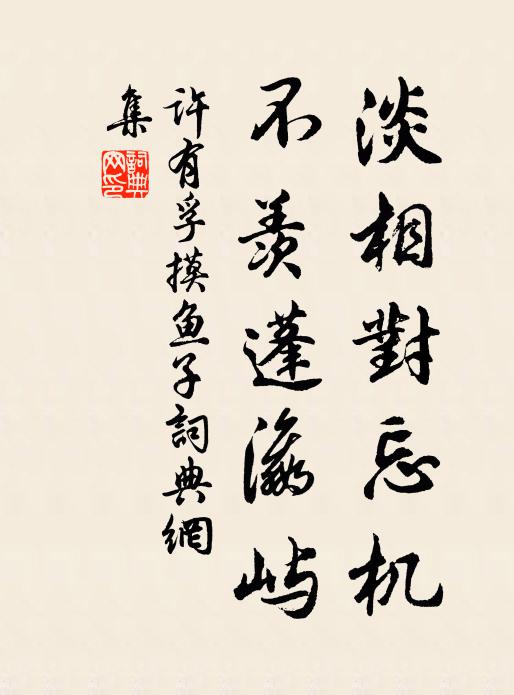 淡相對忘机
不羨蓬瀛屿
许有孚摸鱼子詞典網
集
詞典
网印